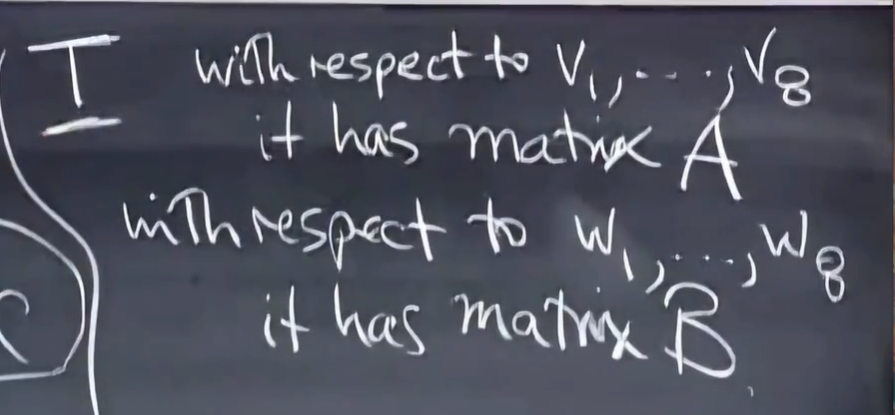 T with respect to v₁, ..., v₈
it has matrix A
with respect to w₁, ..., w₈
it has matrix B.